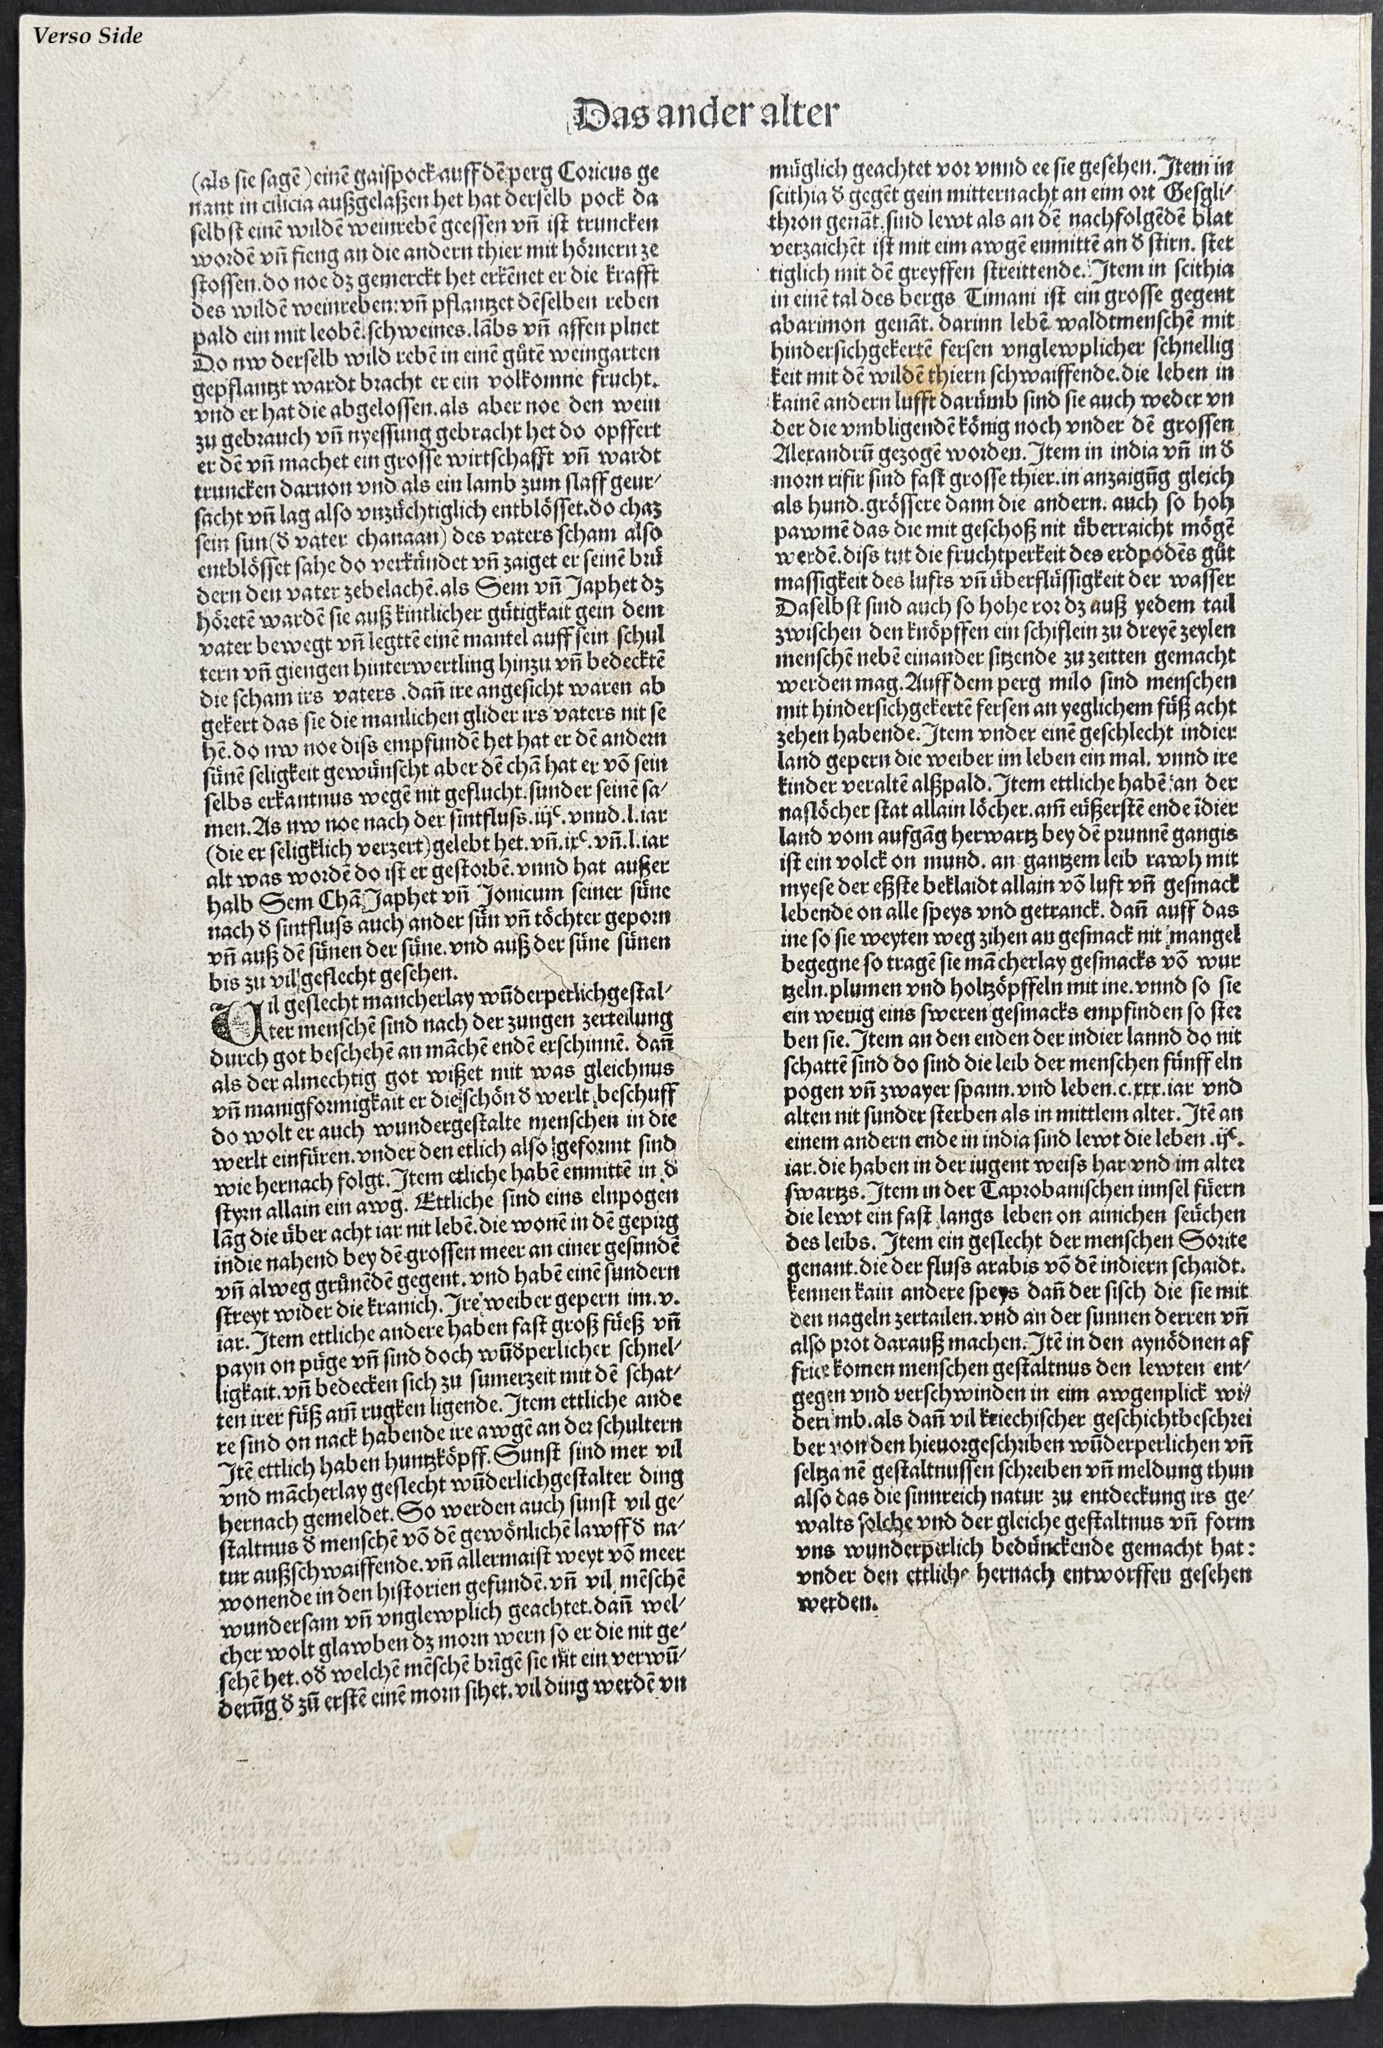 Verso Side
Das ander alter
(als sie sagē) einē gaispock auff dē perg Coricus ge
nant in cilicia außgelaßen het hat derselb pock da
selbst einē wildē weinrebē geessen vñ ist truncken
wordē vñ fieng an die andern thier mit hörnern ze
stossen. do noe dz gemerckt het erkēnet er die krafft
des wildē weinreben: vñ pflantzet dēselben reben
pald ein mit leobē. schweines. lābs vñ affen pluet
Do nw derselb wild rebē in einē gūtē weingarten
gepflantzt wardt bracht er ein volkomne frucht.
vnd er hat die abgelossen. als aber noe den wein
zu gebrauch vñ nyessung gebracht het do opffert
er dē vñ machet ein grosse wirtschafft vñ wardt
truncken daruon vnd als ein lamb zum slaff geur⸗
sacht vñ lag also vnzüchtiglich entblösset. do chaz
sein sun (d̛ vater chanaan) des vaters scham also
entblösset sahe do verkündet vñ zaiget er seinē brü
dern den vater zebelachē. als Sem vñ Japhet dz
hörētē wardē sie auß kintlicher gütigkait gein dem
vater bewegt vñ legttē einē mantel auff sein schul
tern vñ giengen hinterwertling hinzu vñ bedecktē
die scham irs vaters . dañ ire angesicht waren ab
gekert das sie die manlichen glider irs vaters nit se
hē. do nw noe diss empfundē het hat er dē andern
sünē seligkeit gewünscht aber dē chā hat er vō sein
selbs erkantnus wegē nit geflucht. sunder seinē sa⸗
men. As nw noe nach der sintfluss. iijᶜ. vnnd. l. iar
(die er seligklich verzert) gelebt het. vñ. ixᶜ. vñ. l. iar
alt was wordē do ist er gestorbē. vnnd hat außer
halb Sem Chā Japhet vñ Jonicum seiner süne
nach d̛ sintfluss auch ander sün vñ töchter geporn
vñ auß dē sünen der süne. vnd auß der süne sünen
bis zu vil geslecht gesehen.
Vil geslecht mancherlay wūderperlich gestal⸗
ter menschē sind nach der zungen zerteilung
durch got beschehē an māchē endē erschinnē. dañ
als der almechtig got wißet mit was gleichnus
vñ manigformigkait er die schön d̛ werlt beschuff
do wolt er auch wundergestalte menschen in die
werlt einfüren. vnder den etlich also geformt sind
wie hernach folgt. Item etliche habē enmittē in d̛
styrn allain ein awg. Ettliche sind eins elnpogen
lāg die über acht iar nit lebē. die wonē in dē gepirg
indie nahend bey dē grossen meer an einer gesundē
vñ alweg grünēdē gegent. vnd habē einē sundern
streyt wider die kranich. Ire weiber gepern im. v.
iar. Item ettliche andere haben fast groß füeß vñ
payn on püge vñ sind doch wūd̛perlicher schnel⸗
ligkait. vñ bedecken sich zu sumerzeit mit dē schat⸗
ten irer füß am̄ rugken ligende. Item ettliche ande
re sind on nack habende ire awgē an der schultern
Itē ettlich haben huntzköpff. Sunst sind mer vil
vnd mācherlay geslecht wūderlichgestalter ding
hernach gemeldet. So werden auch sunst vil ge⸗
staltnus d̛ menschē vō dē gewönlichē lawff d̛ na⸗
tur außschwaiffende. vñ allermaist weyt vō meer
wonende in den historien gefundē. vñ vil mēschē
wundersam vñ vnglewplich geachtet. dañ wel⸗
cher wolt glawben dz morn wern so er die nit ge⸗
sehē het. od̛ welchē mēschē brīgē sie nit ein verwū⸗
derūg d̛ zū erstē einē morn sihet. vil ding werdē vn
müglich geachtet vor vnnd ee sie gesehen. Item in
scithia d̛ gegēt gein mitternacht an eim ort Gesgli⸗
thron genāt. sind lewt als an dē nachfolgēdē blat
verzaichēt ist mit eim awgē enmittē an d̛ stirn. stet
tiglich mit dē greyffen streittende. Item in scithia
in einē tal des bergs Timani ist ein grosse gegent
abarimon genāt. darinn lebē waldtmenschē mit
hindersichgekertē fersen vnglewplicher schnellig
keit mit dē wildē thiern schwaiffende. die leben in
kainē andern lufft darūmb sind sie auch weder vn
der die vmbligendē könig noch vnder dē grossen
Alexandrū gezogē worden. Item in india vñ in d̛
morn rifir sind fast grosse thier. in anzaigūg gleich
als hund. grössere dann die andern. auch so hoh
pawmē das die mit geschoß nit überraicht mögē
werdē. diss tut die fruchtperkeit des erdpodēs gūt
massigkeit des lufts vñ überflüssigkeit der wasser
Daselbst sind auch so hohe ror dz auß yedem tail
zwischen den knöpffen ein schiflein zu dreyē zeylen
menschē nebē einander sitzende zu zeitten gemacht
werden mag. Auff dem perg milo sind menschen
mit hindersichgekertē fersen an yeglichem füß acht
zehen habende. Item vnder einē geschlecht indier
land gepern die weiber im leben ein mal. vnnd ire
kinder veraltē alßpald. Item ettliche habē an der
naslöcher stat allain löcher. am̄ eüßerstē ende īdier
land vom aufgāg herwartz bey dē prunnē gangis
ist ein volck on mund. an gantzem leib rawh mit
myese der eßste beklaidt allain vō luft vñ gesmack
lebende on alle speys vnd getranck. dañ auff das
ine so sie weyten weg zihen an gesmack nit mangel
begegne so tragē sie mācherlay gesmacks vō wur
tzeln. plumen vnd holtzöpffeln mit ine. vnnd so sie
ein wenig eins sweren gesmacks empfinden so ster
ben sie. Item an den enden der indier lannd do nit
schattē sind do sind die leib der menschen fünff eln
pogen vñ zwayer spann. vnd leben. c. xxx. iar vnd
alten nit sunder sterben als in mittlem altet. Itē an
einem andern ende in india sind lewt die leben . ijᶜ.
iar. die haben in der iugent weiss har vnd im alter
swartzs. Item in der Taprobanischen innsel füern
die lewt ein fast langs leben on ainichen seüchen
des leibs. Item ein geslecht der menschen Sorite
genant. die der fluss arabis vō dē indiern schaidt.
kennen kain andere speys dañ der fisch die sie mit
den nageln zertailen. vnd an der sunnen derren vñ
also prot darauß machen. Itē in den aynödnen af
frice komen menschen gestaltnus den lewten ent⸗
gegen vnd verschwinden in eim awgenplick wi⸗
derumb. als dañ vil kriechischer geschichtbeschrei
ber von den hieuorgeschriben wūderperlichen vñ
seltzanē gestaltnussen schreiben vñ meldung thun
also das die sinnreich natur zu entdeckung irs ge⸗
walts solche vnd der gleiche gestaltnus vñ form
vns wunderperlich bedünckende gemacht hat:
vnder den ettliche hernach entworffen gesehen
werden.